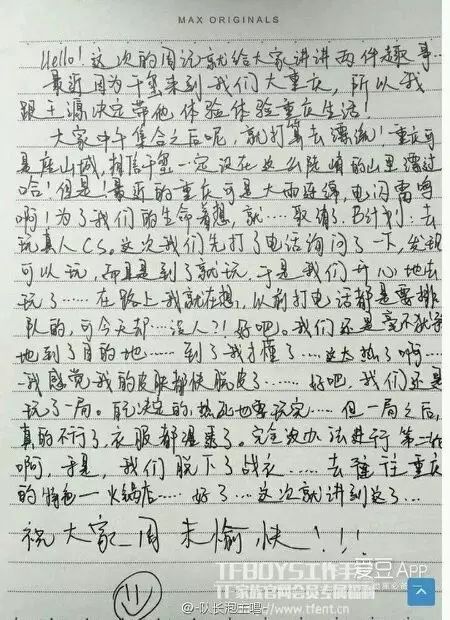 MAX ORIGINALS
Hello!这次的周记就给大家讲讲两件趣事…
最近因为千玺来到我们大重庆,所以我
跟王源决定带他体验体验重庆生活!
大家中午集合之后呢,就打算去漂流!重庆可
是座山城,相信千玺一定没在这么陡峭的山里漂过
哈!但是!最近的重庆可是大雨连绵,电闪雷鸣
啊!为了我们的生命着想,就……取消了.B计划:去
玩真人CS。这次我们先打了电话询问了一下,发现
可以玩,而且是到了就玩,于是我们开心地去
玩了……在路上我就在想,以前打电话都是要排
队的,可今天却…没人?!好吧。我们还是毫不犹豫
地到了目的地……到了我才懂了……这太热了啊……
我感觉我的皮肤都快脱皮了……好吧,我们还是
玩了一局。既决定的,热死也要玩完……但一局之后,
真的不行了,衣服都湿透了。完全没办法进行第二轮
啊,于是,我们脱下了战衣……去往重庆
的特色—火锅店……好了…这次就讲到这了…
祝大家周末愉快!!!
TFBOYS工作手
爱豆APP
TF家族官网会员专属福利
http://www.tfent.cn
@-队长泡王唱-